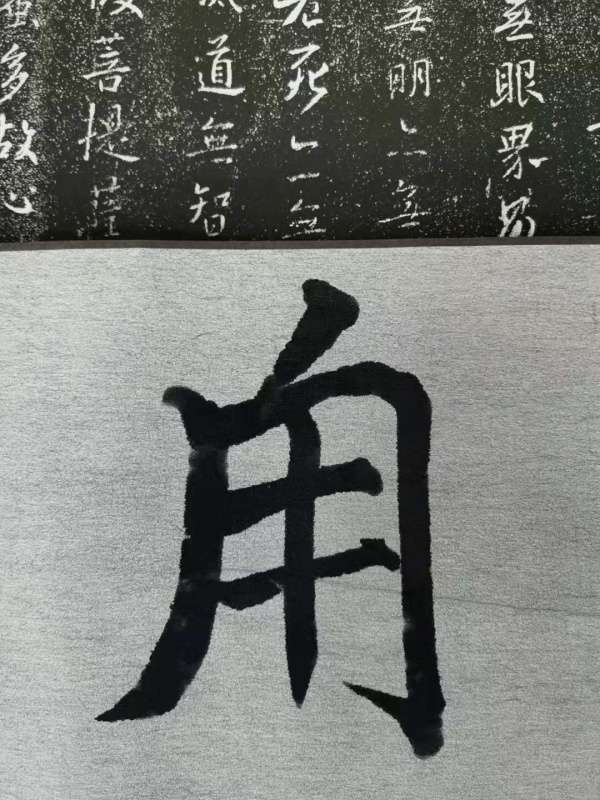 無眼界
無明亦無
老死亦無
道無智
菩提薩
多故心
甪